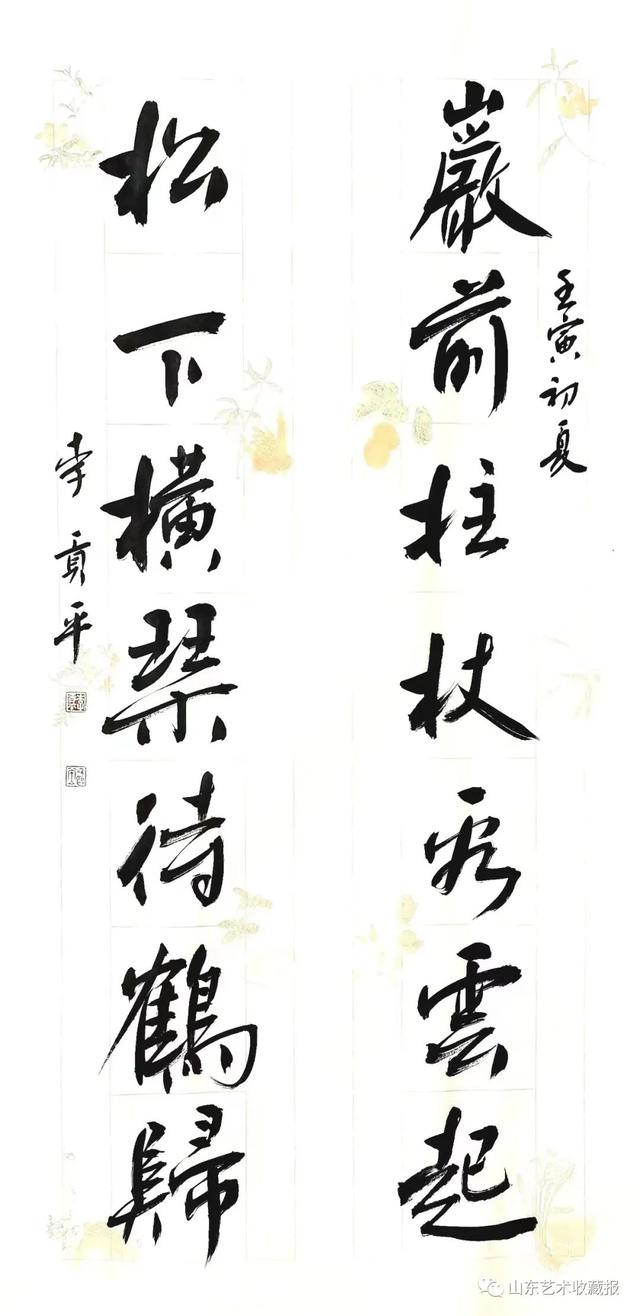 壬寅初夏
巖前拄杖看雲起
松下橫琴待鶴歸
李貢平
山东艺术收藏报